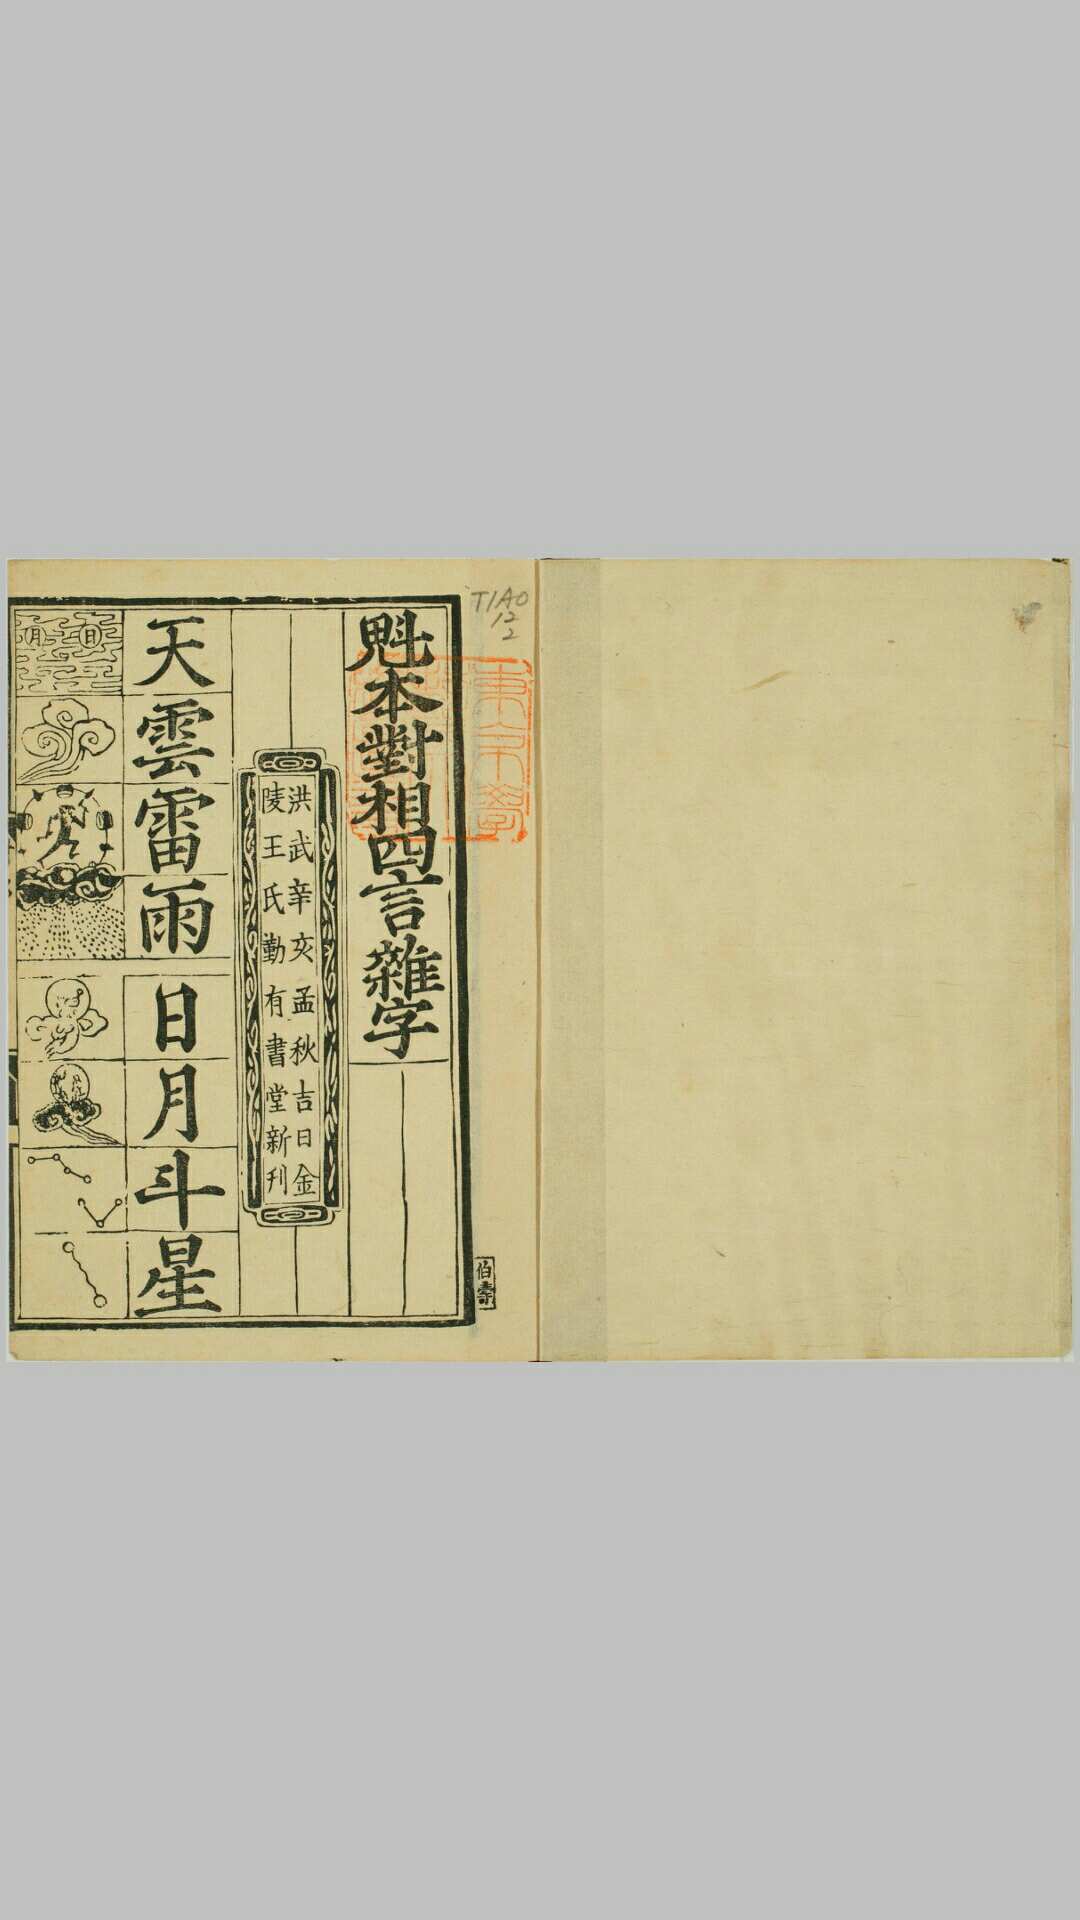 魁本對相四言雜字
洪武辛亥孟秋吉日金
陵王氏勤有書堂新刊
天雲雷雨
日月斗星
日
月
伯壽
TIAO
12
2